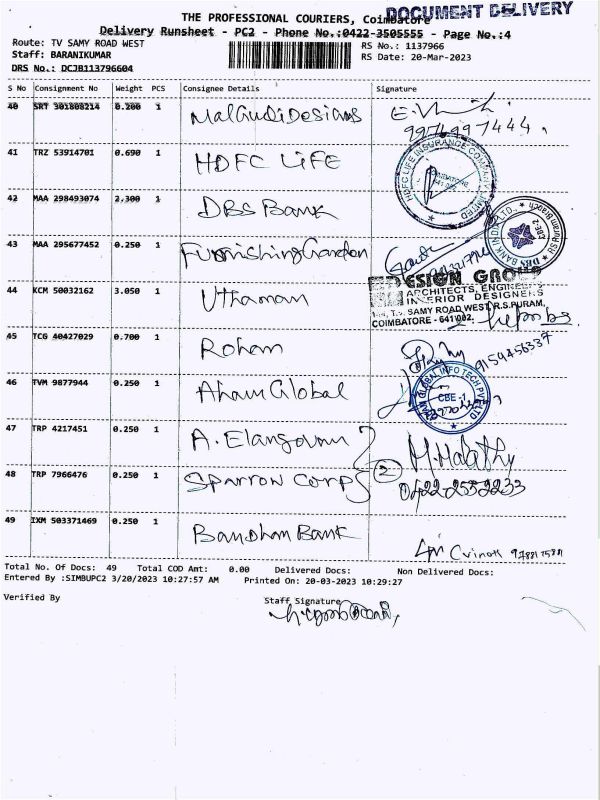 DOCUMENT DELIVERY
THE PROFESSIONAL COURIERS, Coimbatore
Delivery Runsheet - PC2 - Phone No.:0422-3505555 - Page No.:4
Route: TV SAMY ROAD WEST
RS No.: 1137966
Staff: BARANIKUMAR
RS Date: 20-Mar-2023
DRS No.: DCJB113796604
S No Consignment No Weight PCS Consignee Details Signature
40 SRT 301808214 0.200 1 Malgudi Designs
9974997444
41 TRZ 53914701 0.690 1 HDFC LiFE
HDFC LIFE INSURANCE COMPANY LIMITED
COIMBATORE
42 MAA 298493074 2.300 1 DBS Bank
DBS BANK INDIA LTD.,
CBE-2
43 MAA 295677452 0.250 1 Furnishing Garden
DESIGN GROUP
ARCHITECTS, ENGINEERS
INTERIOR DESIGNERS
SAMY ROAD WEST, R.S.PURAM,
COIMBATORE - 641 002.
44 KCM 50032162 3.050 1 Uthaman
45 TCG 40427029 0.700 1 Rohan
9159456337
46 TVM 9877944 0.250 1 Aham Global
GLOBAL INFO TECH PVT LTD
CBE -1
47 TRP 4217451 0.250 1 A. Elangovan
M. Malathy
48 TRP 7966476 0.250 1 Sparrow Corps
2
0422-2552233
49 IXM 503371469 0.250 1 Bandhan Bank
Total No. Of Docs: 49 Total COD Amt: 0.00 Delivered Docs: Non Delivered Docs:
Entered By :SIMBUPC2 3/20/2023 10:27:57 AM Printed On: 20-03-2023 10:29:27
Verified By
Staff Signature